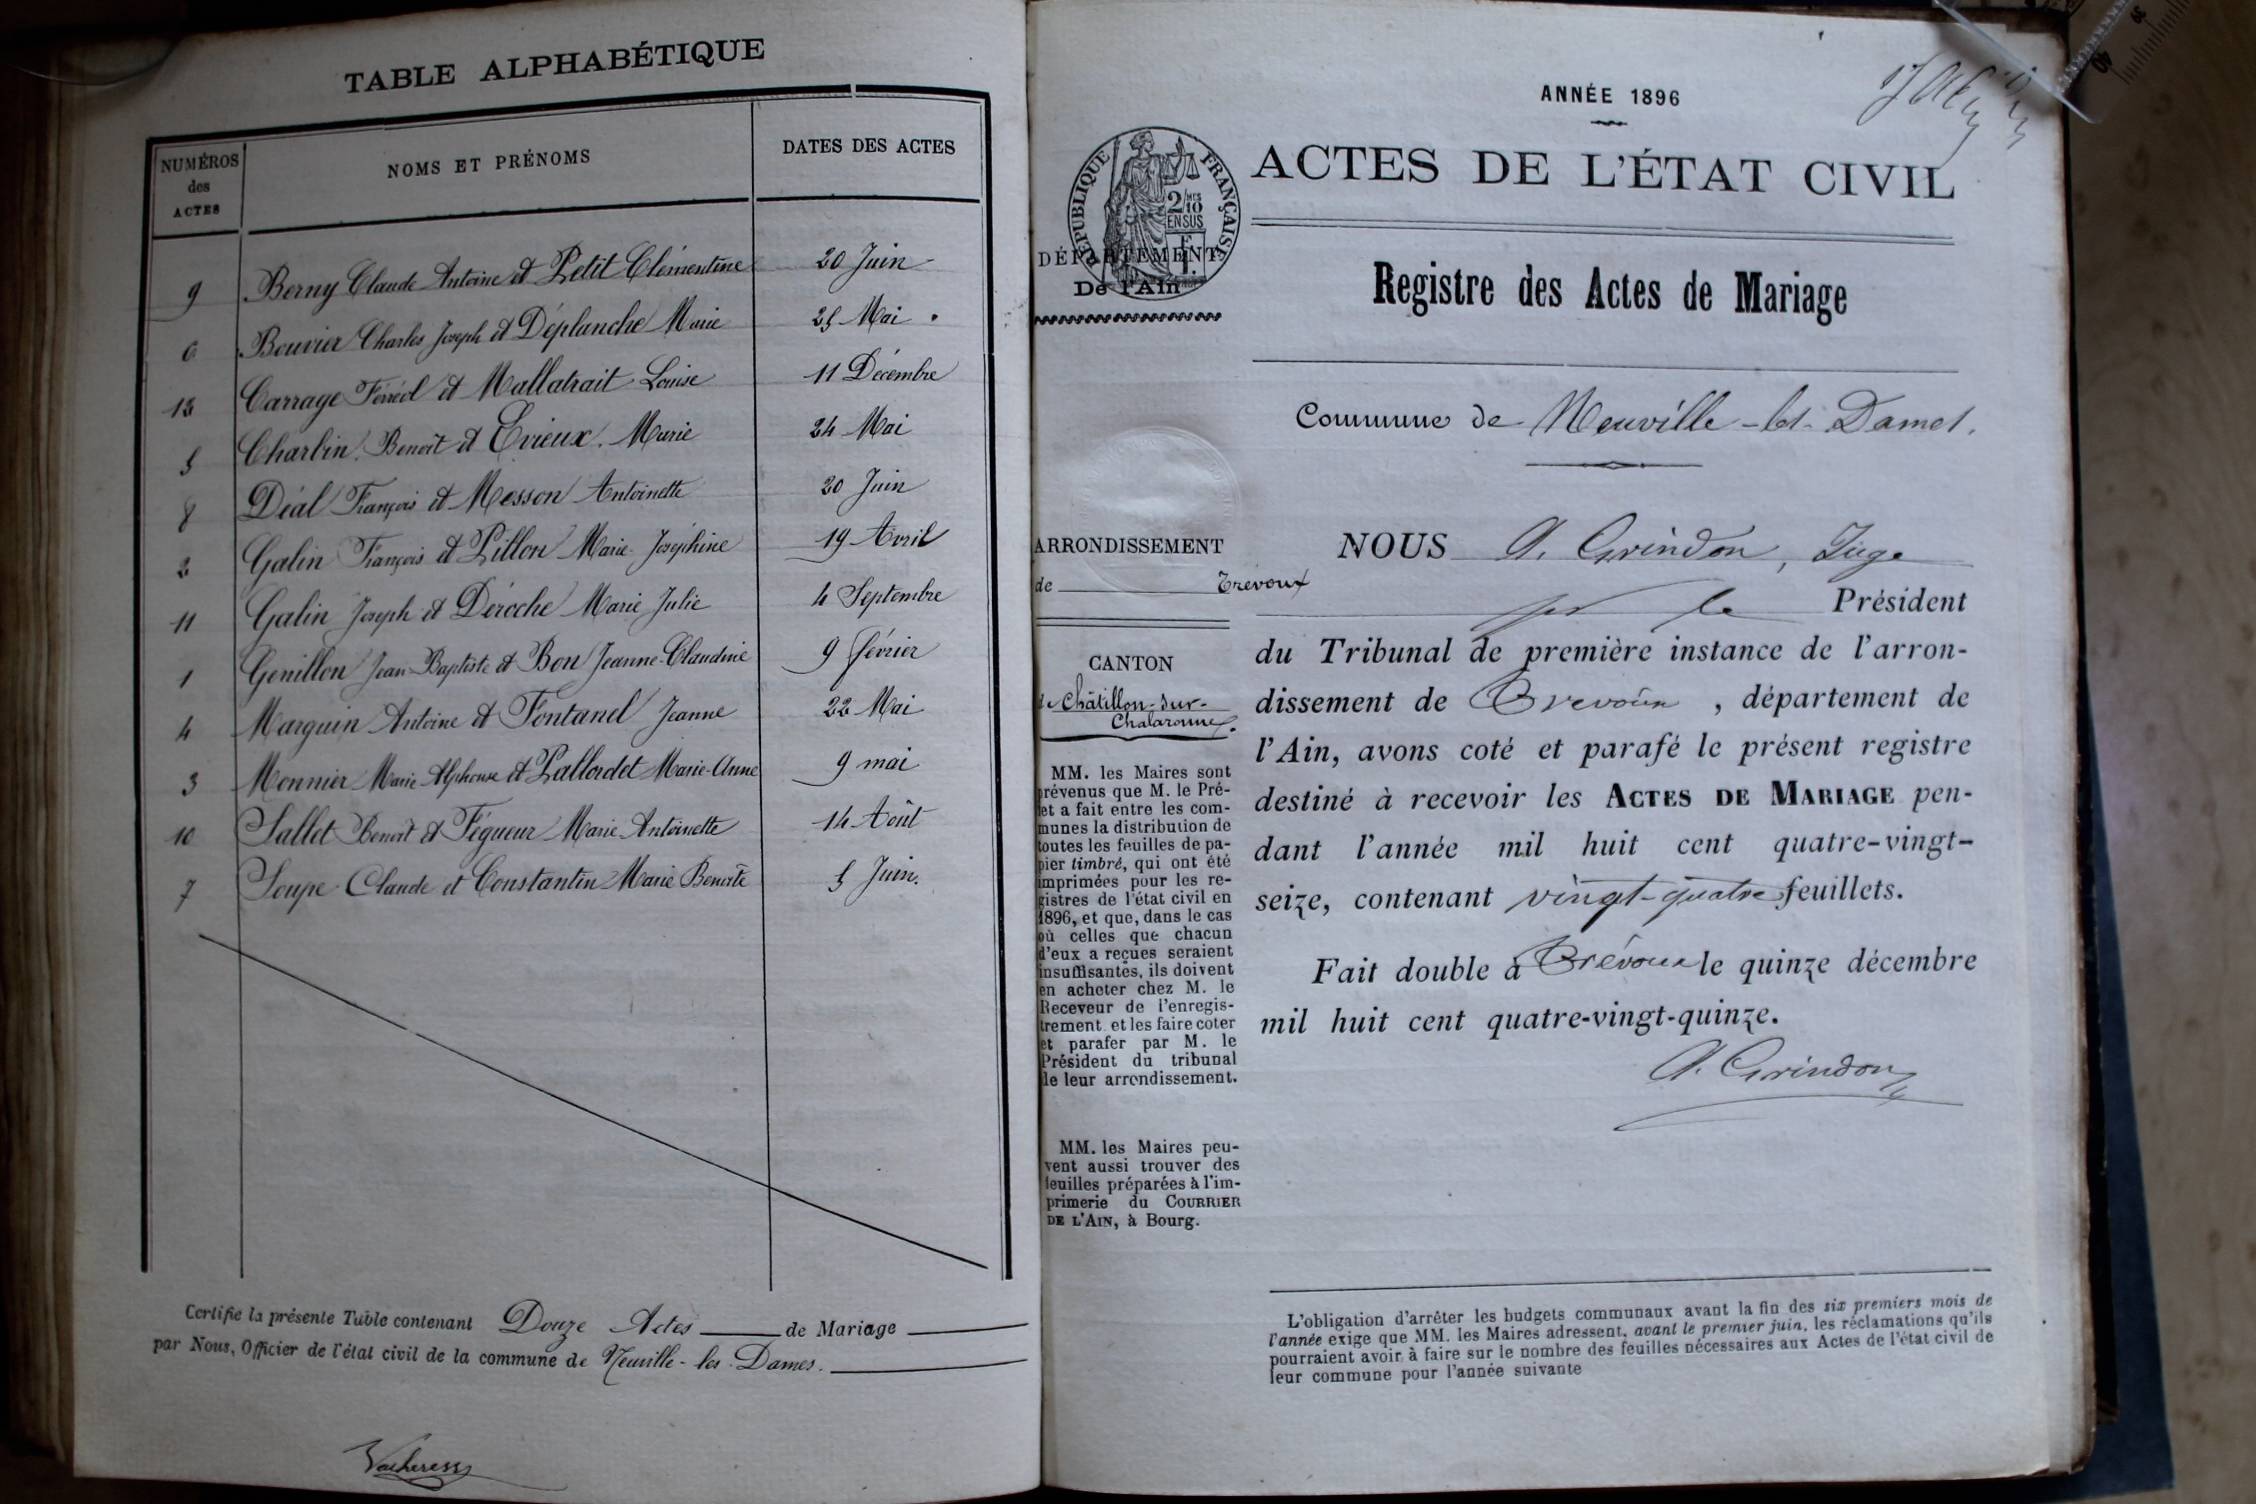 TABLE ALPHABÉTIQUE
NUMÉROS des ACTES
NOMS ET PRÉNOMS
DATES DES ACTES
9 Berny Claude Antoine et Petit Clémentine 20 Juin
6 Bouvier Charles Joseph et Déplanche Marie 25 Mai
12 Carrage Férréol et Mallatrait Louise 11 Décembre
5 Charbin Benoît et Evieux Marie 24 Mai
8 Déal François et Messon Antoinette 20 Juin
2 Galin François et Pillon Marie Joséphine 19 Avril
11 Galin Joseph et Déroche Marie Julie 4 Septembre
1 Genillon Jean-Baptiste et Bon Jeanne-Claudine 9 février
4 Marguin Antoine et Fontanel Jeanne 22 Mai
3 Monnier Marie Alphonse et Pallordet Marie-Anne 9 mai
10 Sallet Benoît et Fégueur Marie-Antoinette 14 Août
7 Soupe Claude et Constantin Marie Benoîte 5 Juin.
Certifie la présente Table contenant Douze Actes de Mariage
par Nous, Officier de l'état civil de la commune de Neuville-les-Dames.
ANNÉE 1896
ACTES DE L'ÉTAT CIVIL
RÉPUBLIQUE FRANÇAISE
2/10 MES
EN SUS
DÉPARTEMENT
De l'Ain
Registre des Actes de Mariage
Commune de Neuville-les-Dames.
ARRONDISSEMENT
de Trévoux
CANTON
de Châtillon-sur-
Chalaronne.
MM. les Maires sont
prévenus que M. le Pré-
fet a fait entre les com-
munes la distribution de
toutes les feuilles de pa-
pier timbré, qui ont été
imprimées pour les re-
gistres de l'état civil en
1896, et que, dans le cas
où celles que chacun
d'eux a reçues seraient
insuffisantes, ils doivent
en acheter chez M. le
Receveur de l'enregis-
trement et les faire coter
et parafer par M. le
Président du tribunal
de leur arrondissement.
MM. les Maires peu-
vent aussi trouver des
feuilles préparées à l'im-
primerie du COURRIER
DE L'AIN, à Bourg.
NOUS A. Grindon, Juge
pr le Président
du Tribunal de première instance de l'arron-
dissement de Trévoux, département de
l'Ain, avons coté et parafé le présent registre
destiné à recevoir les ACTES DE MARIAGE pen-
dant l'année mil huit cent quatre-vingt-
seize, contenant vingt-quatre feuillets.
Fait double à Trévoux le quinze décembre
mil huit cent quatre-vingt-quinze.
A. Grindon
L'obligation d'arrêter les budgets communaux avant la fin des six premiers mois de
l'année exige que MM. les Maires adressent, avant le premier juin, les réclamations qu'ils
pourraient avoir à faire sur le nombre des feuilles nécessaires aux Actes de l'état civil de
leur commune pour l'année suivante